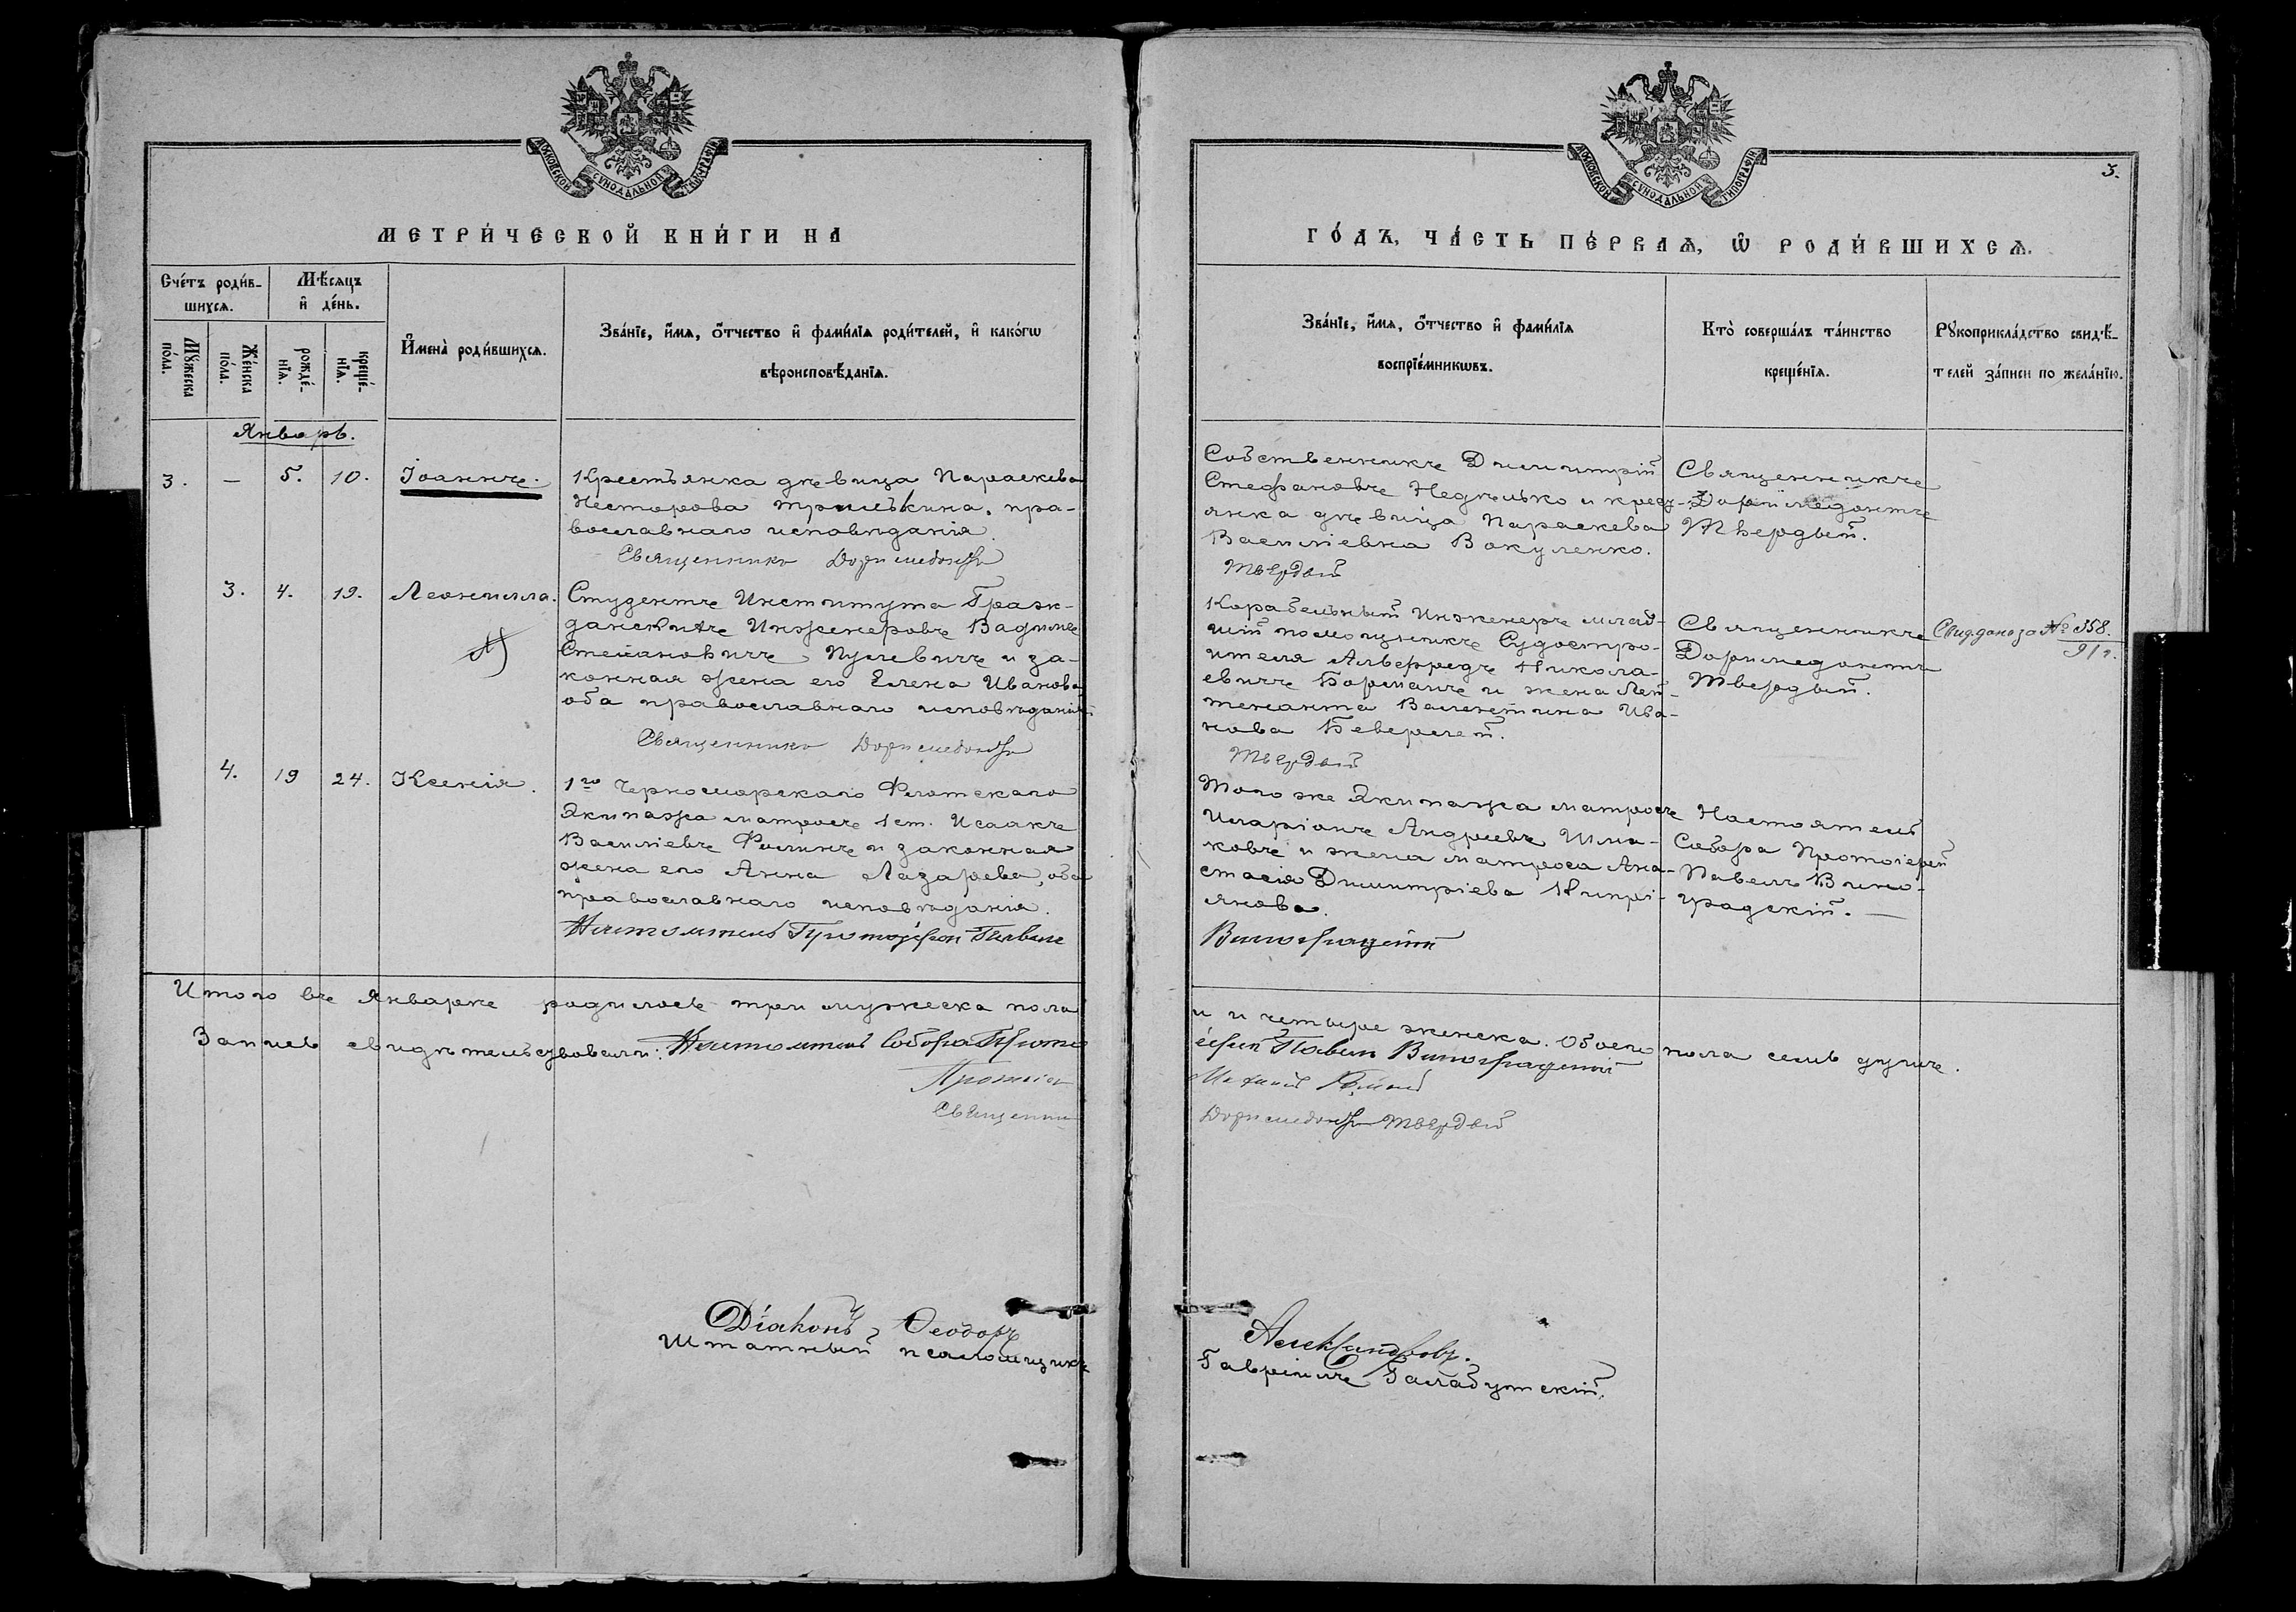 МОСКОВСКОЙ СѴНОДАЛЬНОЙ ТИПОГРАФІИ
МЕТРИ́ЧЕСКОЙ КНИ́ГИ НА
Сче́тъ роди́в-
шихся.
Мѣ́сяцъ
и҆ де́нь.
Мꙋ́жеска
по́ла.
Же́нска
по́ла.
рожде́-
нїѧ.
креще́-
нїѧ.
И҆мена̀ роди́вшихсѧ.
Зва́нїе, и҆́мѧ, ѻ҆́тчество и҆ фами́лїѧ роди́телей, и҆ како́гѡ
вѣроисповѣ́данїѧ.
Январь.
3. — 5. 10. Іоаннъ.
Крестьянка дѣвица Параскева
Несторова Тришкина, пра-
вославнаго исповѣданія.
Священникъ Доримедонтъ
3. 4. 19. Леонилла.
Студентъ Института Граж-
данскихъ Инженеровъ Вадимъ
Степановичъ Пулевичъ и за-
конная жена его Елена Иванова
оба православнаго исповѣданія
Священникъ Доримедонтъ
4. 19 24. Ксенія.
1го Черноморскаго Флотскаго
Экипажа матросъ 1 ст. Исаакъ
Василіевъ Филинъ и законная
жена его Анна Лазарева, оба
православнаго исповѣданія.
Настоятель Протоіерей Павелъ
Итого въ Январѣ родилось три мужеска пола
Запись свидѣтельствовали: Настоятель Собора Прото
Протоіе
Священни
Діаконъ Ѳеодоръ
Штатный псаломщикъ
МОСКОВСКОЙ СѴНОДАЛЬНОЙ ТИПОГРАФІИ
3.
ГО́ДЪ, ЧА́СТЬ ПЕ́РВАѦ, Ѡ҆ РОДИ́ВШИХСѦ.
Зва́нїе, и҆́мѧ, ѻ҆́тчество и҆ фами́лїѧ
воспрїе́мникѡвъ.
Кто̀ соверша́лъ та́инство
креще́нїѧ.
Рꙋкоприкла́дство свидѣ́-
телей за́писи по жела́нїю.
Собственникъ Димитрій
Стефановъ Недѣлько и кресть-
янка дѣвица Параскева
Василіевна Вакуленко.
Твердый
Священникъ
Доримедонтъ
Твердый.
Корабельный Инженеръ млад-
шій помощникъ Судостро-
ителя Альфредъ Никола-
евичъ Борманъ и жена Лей-
тенанта Валентина Ива-
нова Беверлей.
Твердый
Священникъ
Доримедонтъ
Твердый.
Свид. дано за № 358.
91 г.
Того же Экипажа матросъ
Иларіонъ Андреевъ Шма-
ковъ и жена матроса Ана-
стасія Димитріева Кипрі-
янова.
Виноградскій
Настоятель
Собора Протоіерей
Павелъ Вино-
градскій. —
и и четыре женска. Обоего пола семь душъ.
іерей Павелъ Виноградскій
Доримедонтъ Твердый
Александровъ.
Гавріилъ